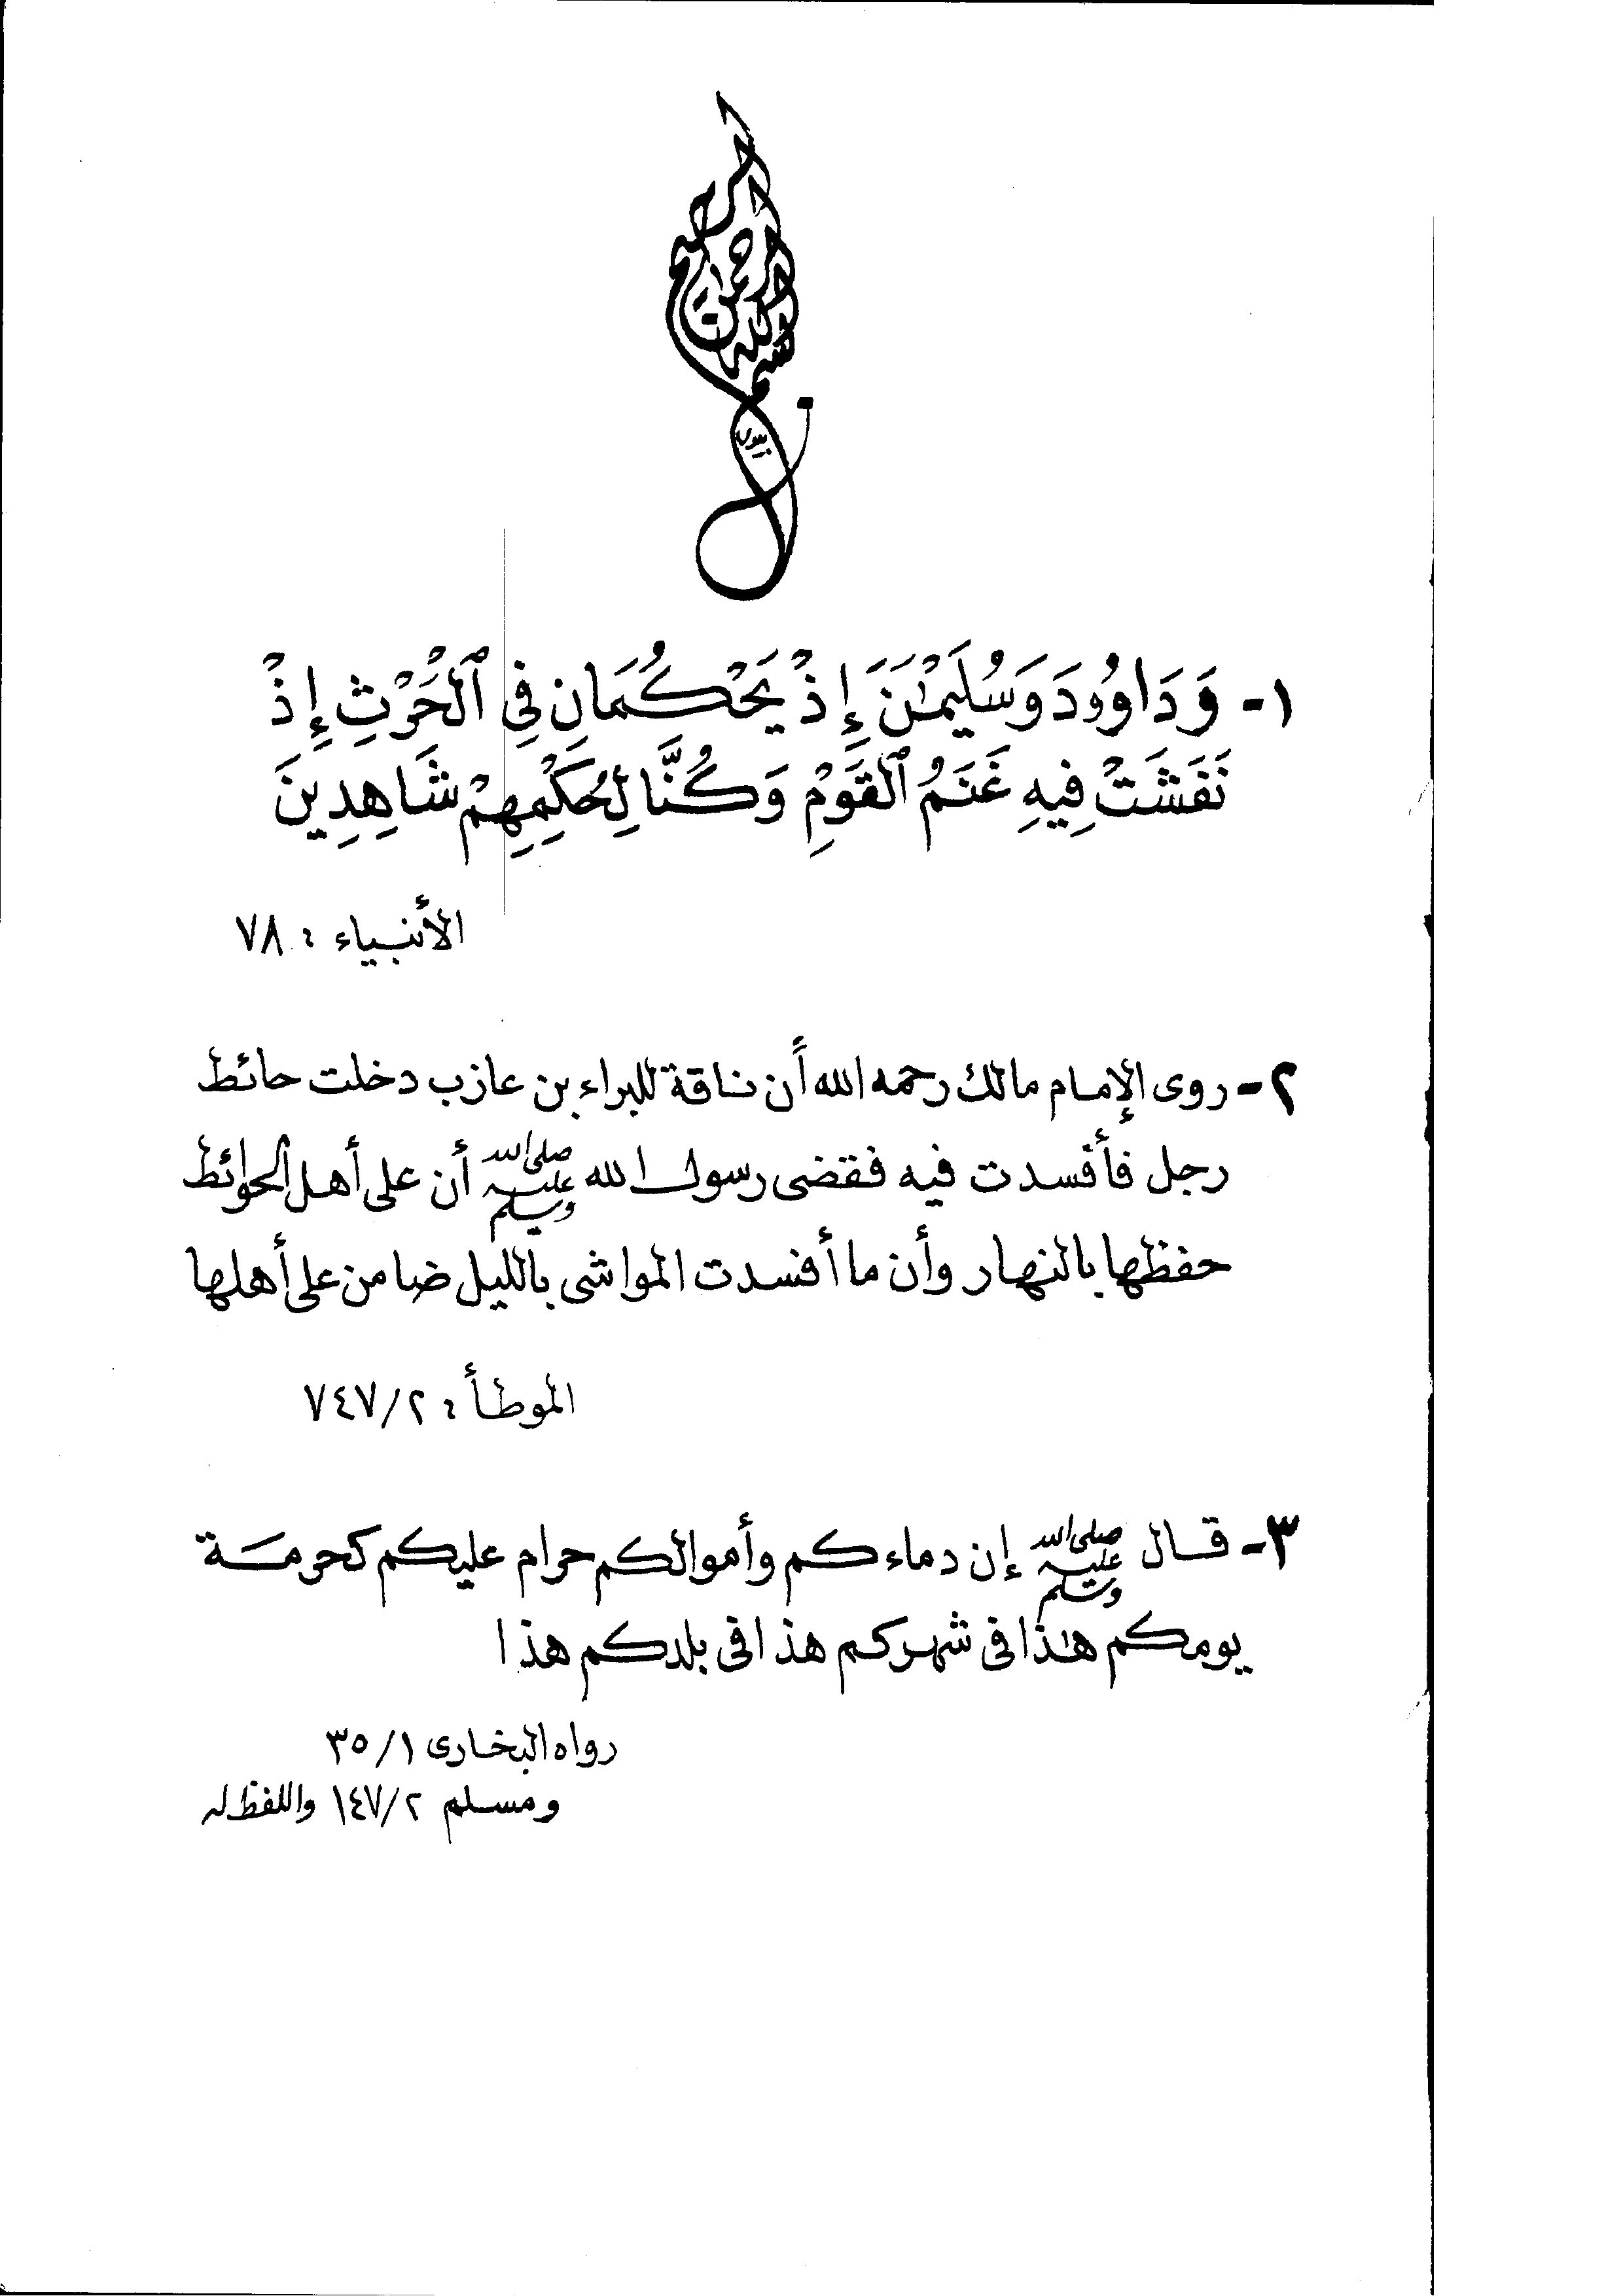 بسم الله الرحمن الرحيم
١- وَدَاوُودَ وَسُلَيْمَٰنَ إِذْ يَحْكُمَانِ فِي ٱلْحَرْثِ إِذْ
نَفَشَتْ فِيهِ غَنَمُ ٱلْقَوْمِ وَكُنَّا لِحُكْمِهِمْ شَاهِدِينَ
الأنبياء : ٧٨
٢- روى الإمام مالك رحمه الله أن ناقة للبراء بن عازب دخلت حائط
رجل فأفسدت فيه فقضى رسول الله صلى الله عليه وسلم أن على أهل الحوائط
حفظها بالنهار وأن ما أفسدت المواشى بالليل ضامن على أهلها
الموطأ : ٧٤٧/٢
٣- قال صلى الله عليه وسلم إن دماءكم وأموالكم حرام عليكم كحرمة
يومكم هذا فى شهركم هذا فى بلدكم هذا
رواه البخارى ٣٥/١
ومسلم ١٤٧/٢ واللفظ له